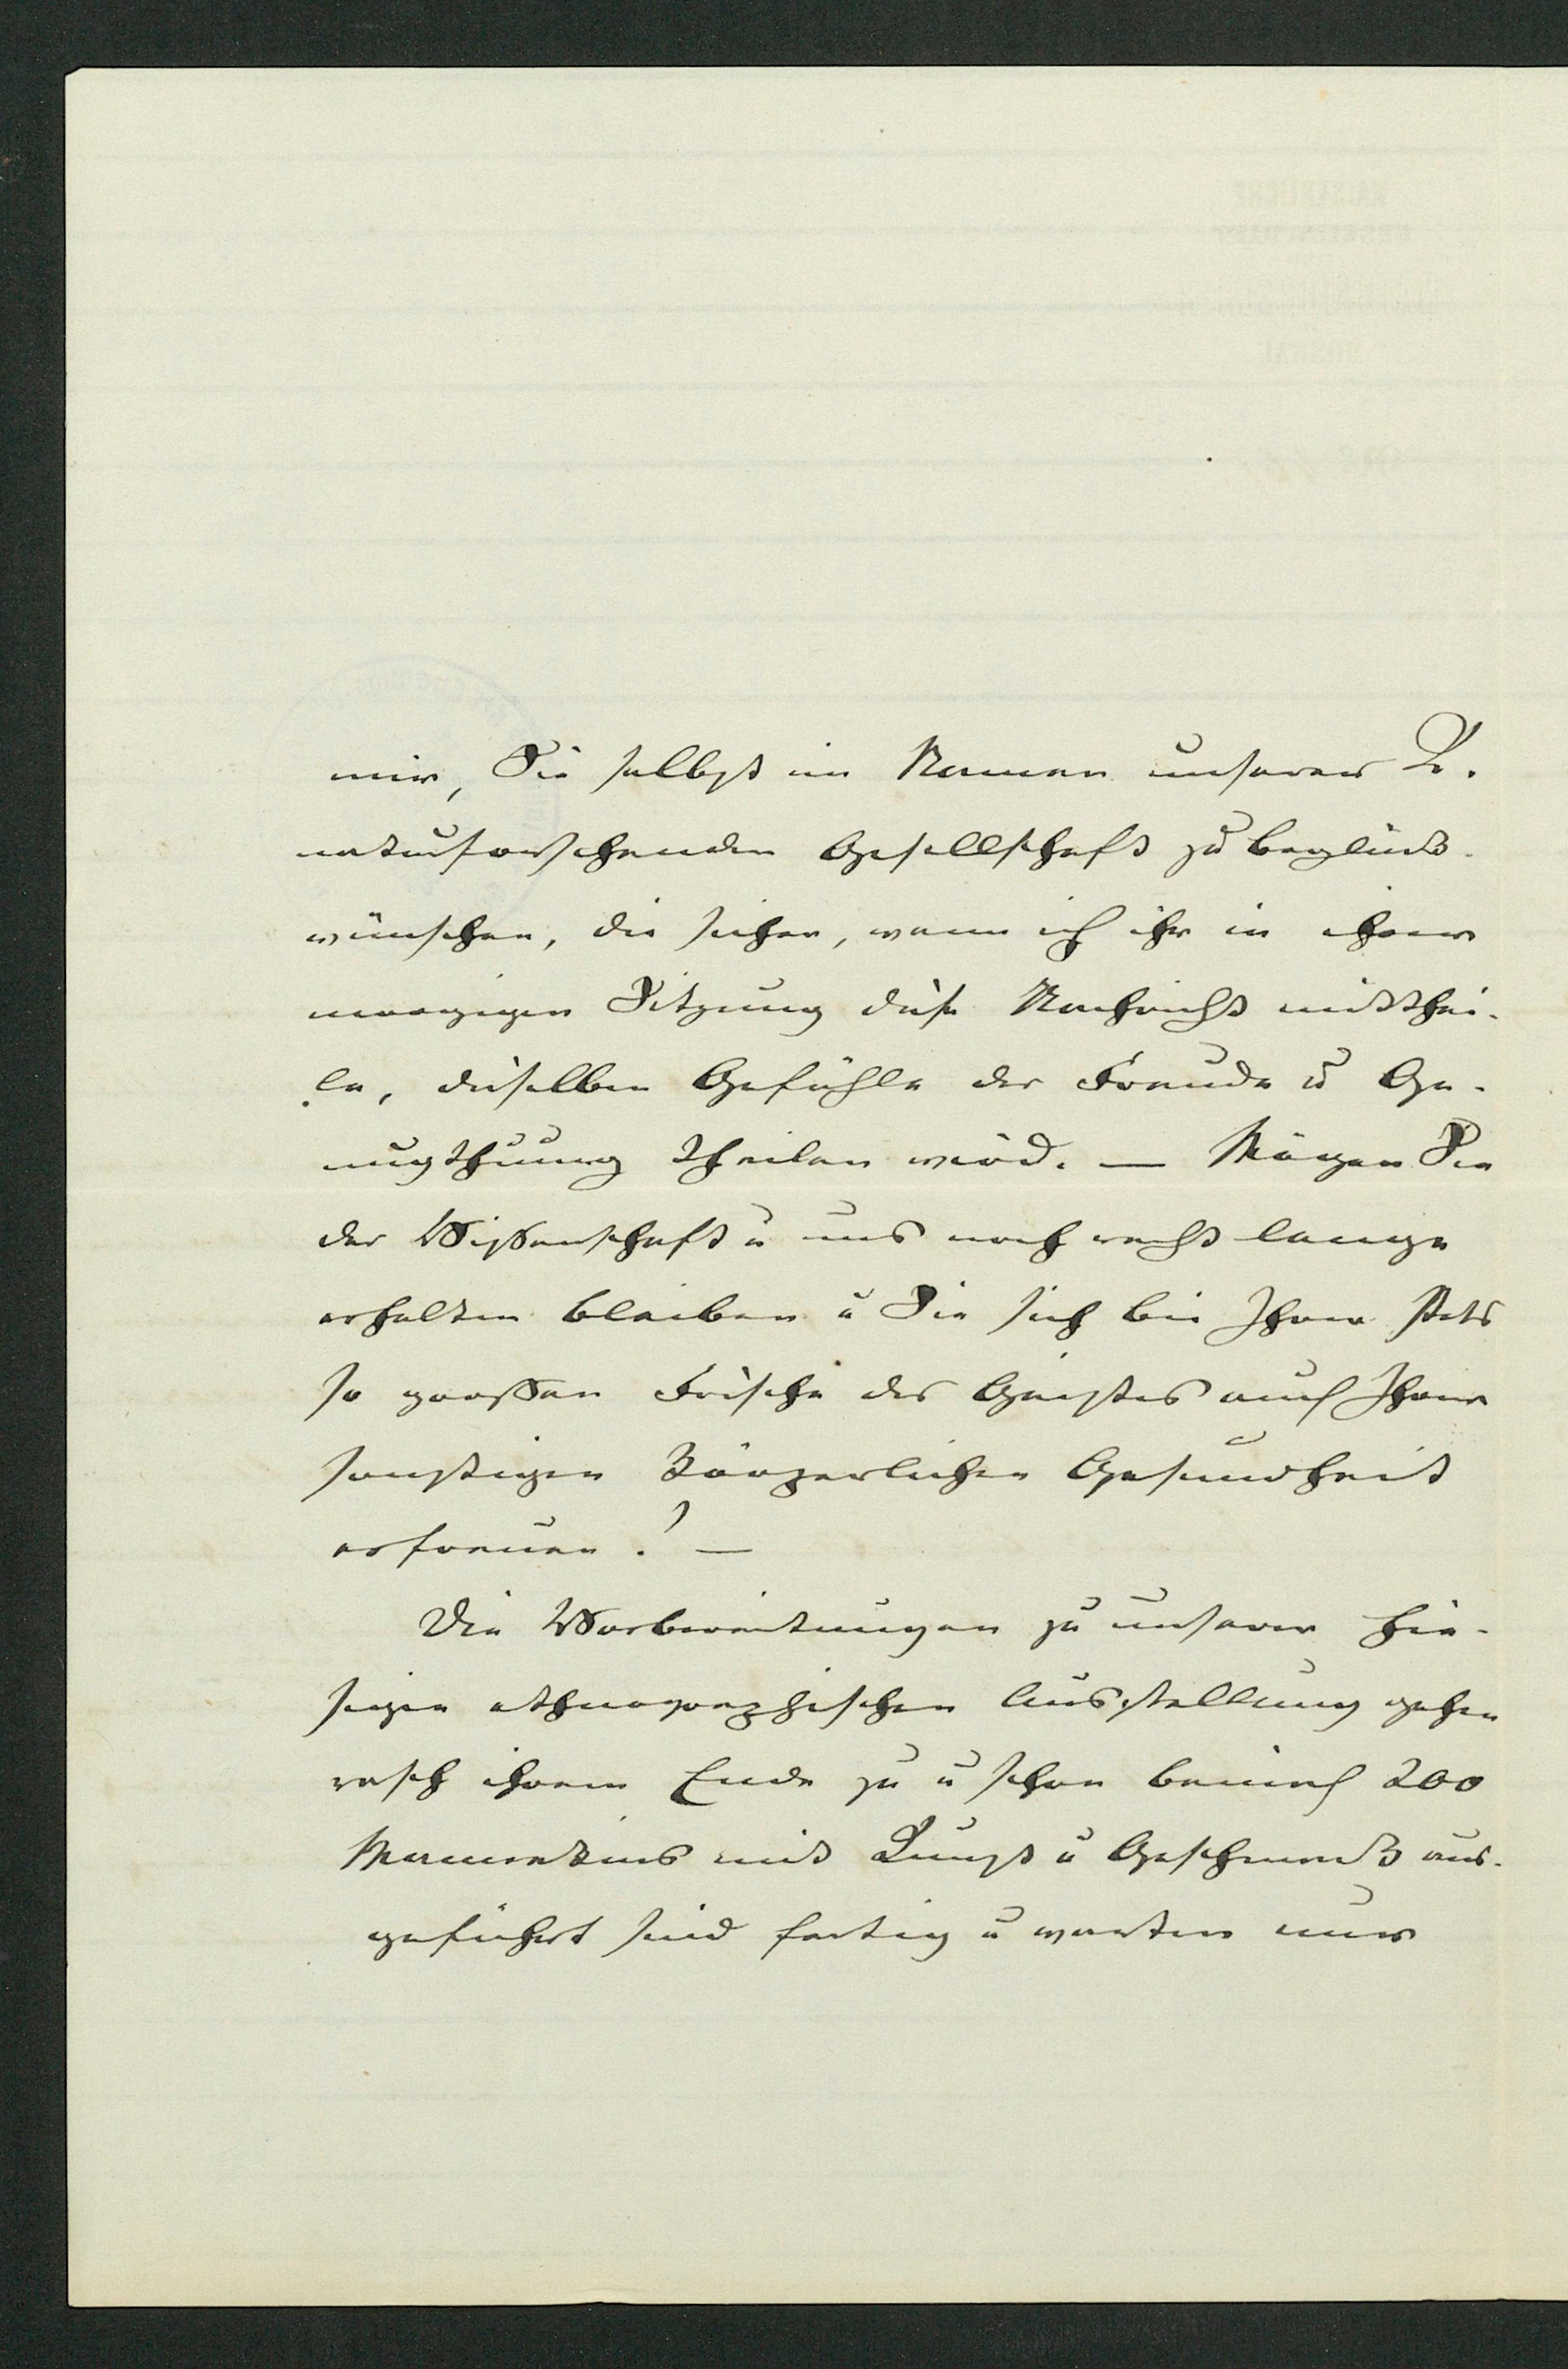 mir, Sie selbst im Namen unserer K.
naturforschenden Gesellschaft zu beglück-
wünschen, die sicher, wenn ich ihr in ihrer
morgigen Sitzung diese Nachricht mitthei-
le, dieselben Gefühle der Freude u Ge-
nugthuung theilen wird. — Mögen Sie
der Wissenschaft u uns noch recht lange
erhalten bleiben u Sie sich bei Ihrer stets
so großen Frische des Geistes auch Ihrer
sonstigen körperlichen Gesundheit
erfreuen! —
Die Vorbereitungen zu unserer hie-
sigen ethnographischen Ausstellung gehen
rasch ihrem Ende zu u schon beinah 200
Mannekins mit Kunst u Geschmack aus-
geführt sind fertig u warten nur